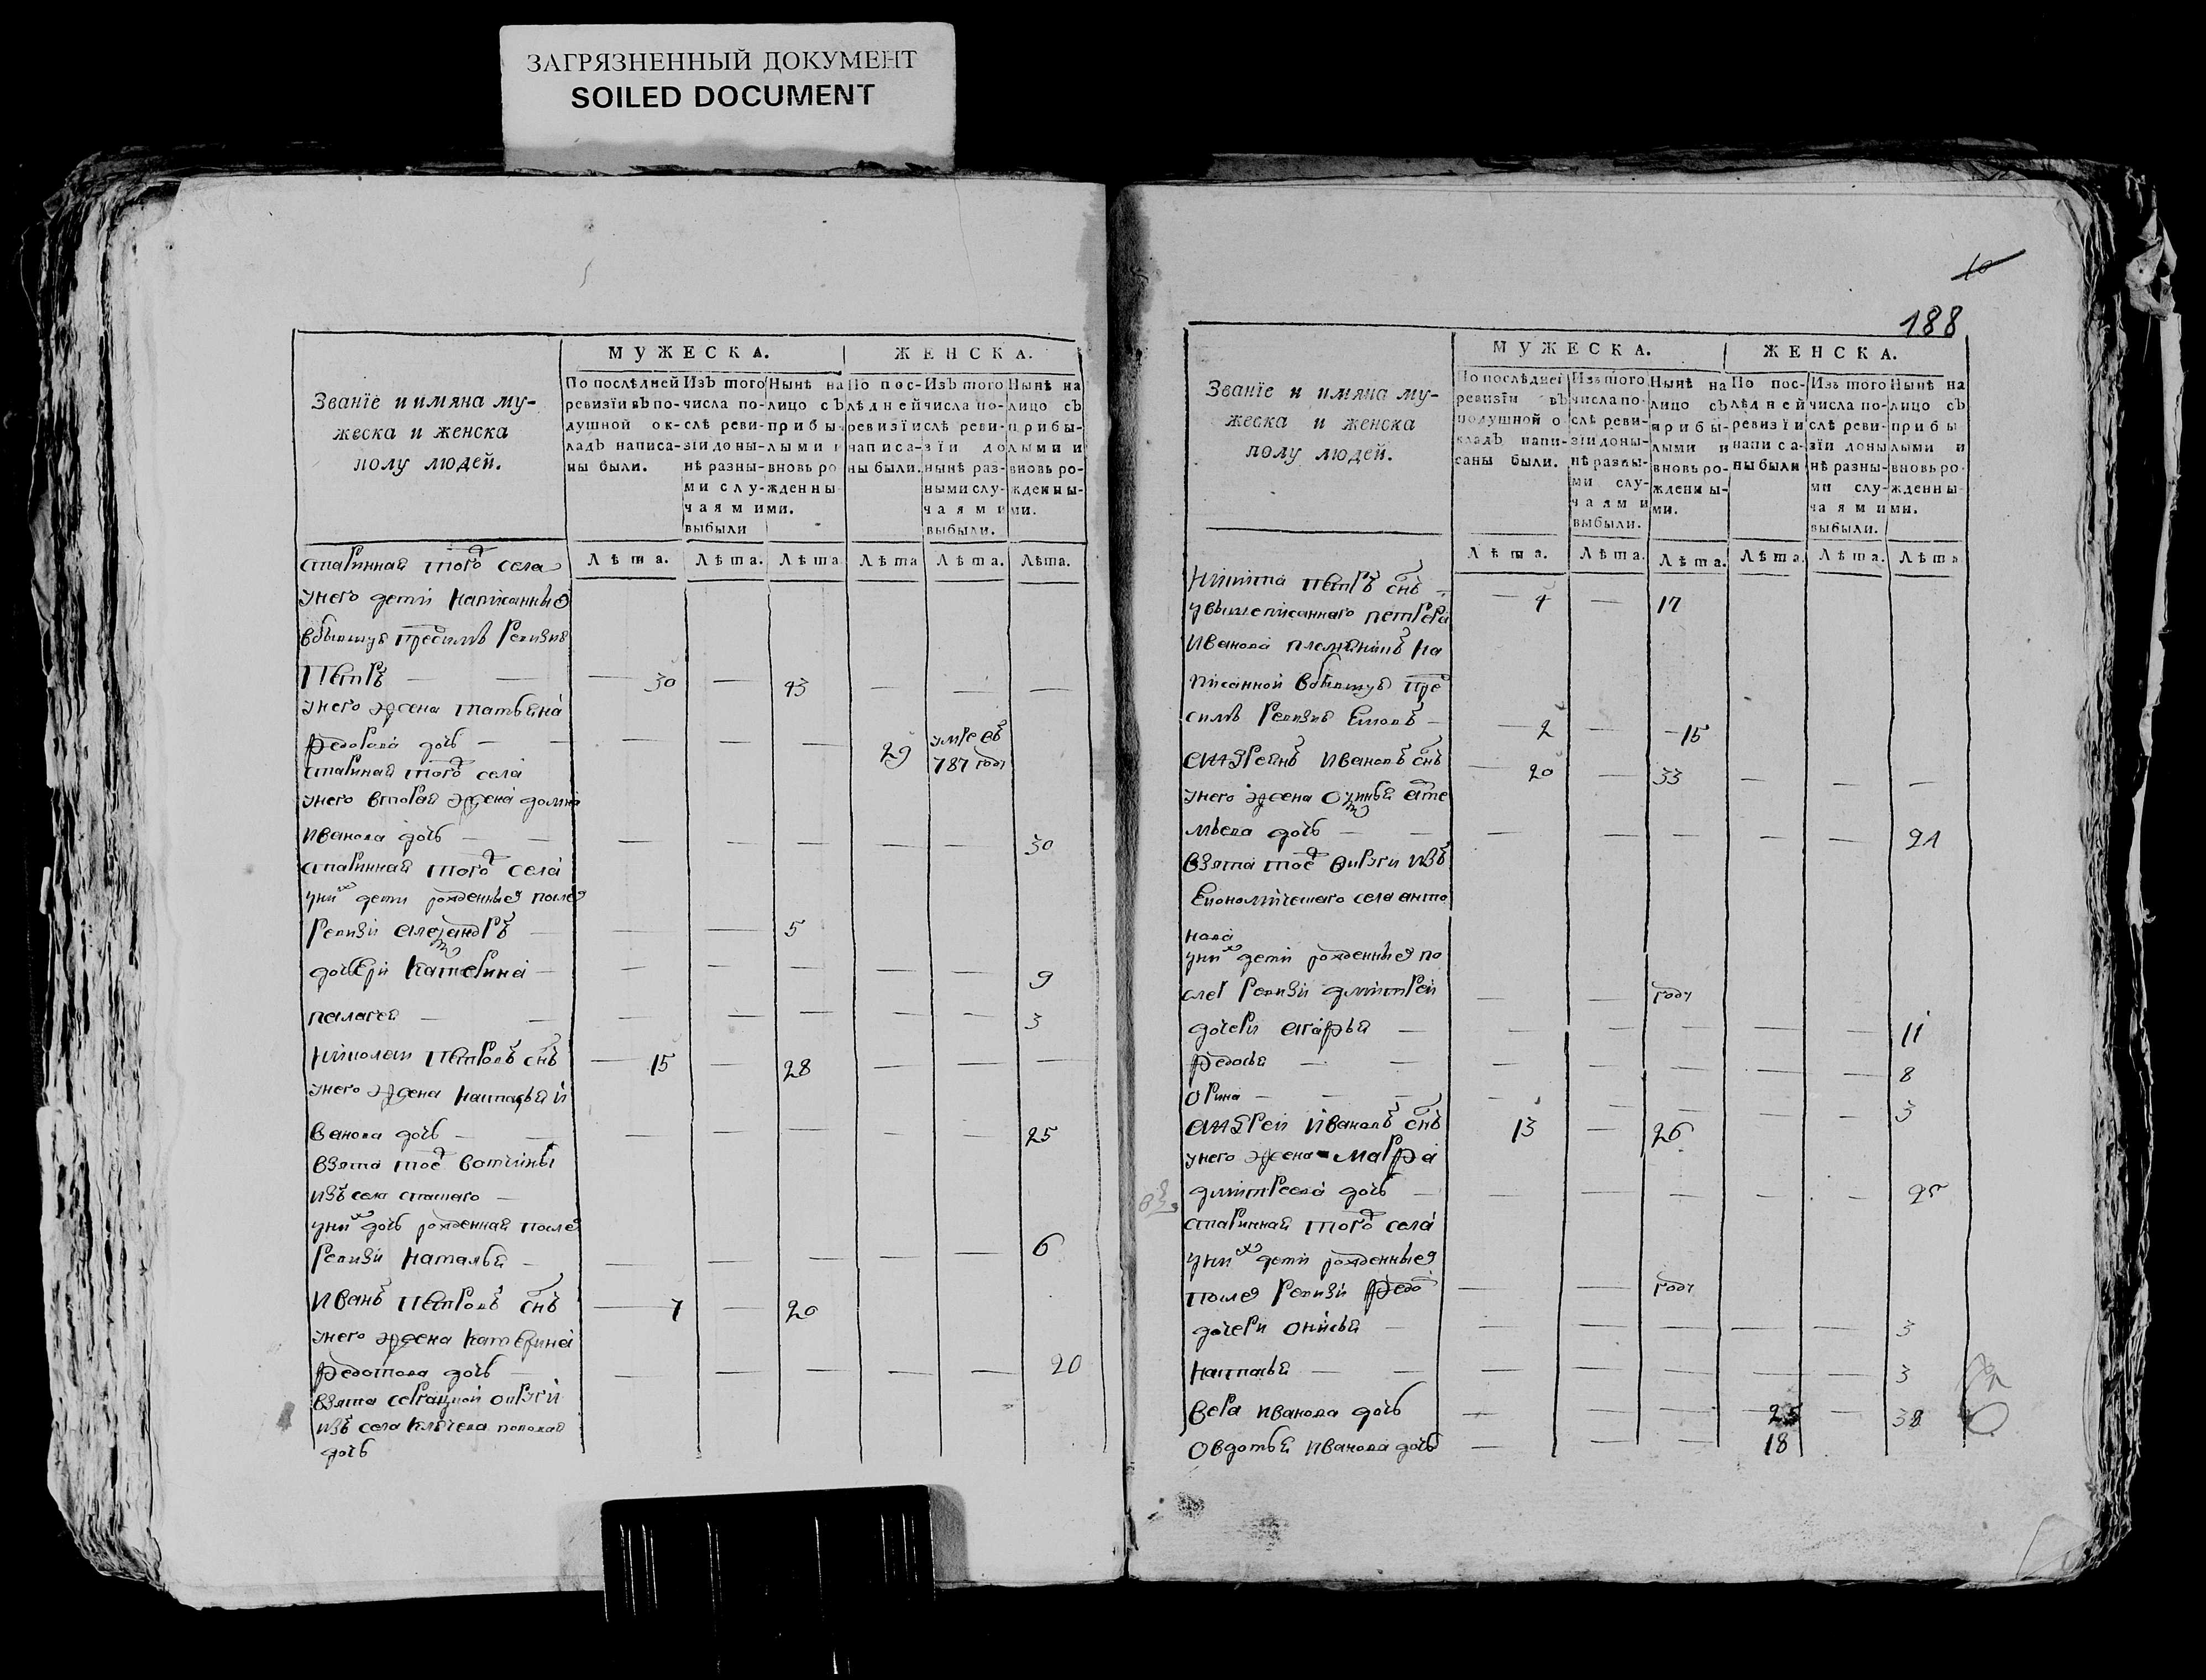 ЗАГРЯЗНЕННЫЙ ДОКУМЕНТ
SOILED DOCUMENT
Званїе и имяна му-
жеска и женска
полу людей.
МУЖЕСКА.
ЖЕНСКА.
По послѣдней
ревизїи въ по-
душной ок-
ладъ написа-
ны были.
Изъ того
числа по-
слѣ реви-
зїи доны-
нѣ разны-
ми слу-
чаями
выбыли
Нынѣ на
лицо съ
прибы-
лыми и
вновь ро
жденны
ми.
По пос-
лѣдней
ревизїи
написа-
ны были.
Изъ того
числа по-
слѣ реви-
зїи до
нынѣ раз-
ными слу-
чаями
выбыли.
Нынѣ на
лицо съ
прибы-
лыми и
вновь ро-
жденны-
ми.
Лѣта. Лѣта. Лѣта Лѣта Лѣта. Лѣта.
старинная тогоⷤ села
унего дети написанные
вбывшую пред симъ ревизию
Петръ — — 30 — 43 — — —
унего жена татьяна
федорова дочь — — — — 29 умре въ 787 году
старинная тогоⷤ села
унего вторая жена домна
иванова дочь — — — — — — 30
старинная тогоⷤ села
униⷯ дети рожденные после
ревизи александръ — — — 5
дочери катерина — — — — — — 9
пелагея — — — — — — 3
николай Петровъ снъ — 15 — 28 — — —
унего жена настасья и
ванова дочь — — — — — — 25
взята тоеⷤ вотчины
изъ села спаского —
униⷯ дочь рожденная после
ревизи наталья — — — — — — 6
иванъ Петровъ снъ — 7 — 20
унего жена катерина
федотова дочь — — — — — — 20
взята сергацкой округи
изъ села ключева попова
дочь
10
188
Званїе и имяна му-
жеска и женска
полу людей.
МУЖЕСКА.
ЖЕНСКА.
По послѣдней
ревизїи въ
подушной о
кладъ напи-
саны были.
Изъ того
числа по-
слѣ реви-
зїи доны-
нѣ разны-
ми слу-
чаями
выбыли.
Нынѣ на
лицо съ
прибы-
лыми и
вновь ро-
жденны-
ми.
По пос-
лѣдней
ревизїи
написа-
ны были
Изъ того
числа по-
слѣ реви-
зїи доны
нѣ разны-
ми слу-
чаями
выбыли.
Нынѣ на
лицо съ
прибы
лыми и
вновь ро-
жденны-
ми.
Лѣта. Лѣта. Лѣта. Лѣта. Лѣта. Лѣта
никита петръ снъ — 4 — 17
увышеписаннаго петра
иванова племянникъ на
писанной вбывшую пре
симъ ревизию — 2 — 15
андреянъ ивановъ снъ — 20 — 33 — — —
унего жена арте
мьева дочь — — — — — — 21
взята тоеⷤ округи изъ
економического села анто
нова
униⷯ дети рожденные по
сле ревизи дмитрей — — году
дочери агафья — — — — — 11
федосья — — — — — — 8
орина — — — — — — 3
андрей ивановъ снъ 13 — 26
унего жена марфа
дмитреева дочь — — — — — — 25
старинная тогоⷤ села
униⷯ дети рожденные
после ревизи федоⷬ — — году
дочери онисья — — — — — — 3
настасья — — — — — 3
вера иванова дочь — — — 25 — 38
овдотья иванова дочь — — — 18